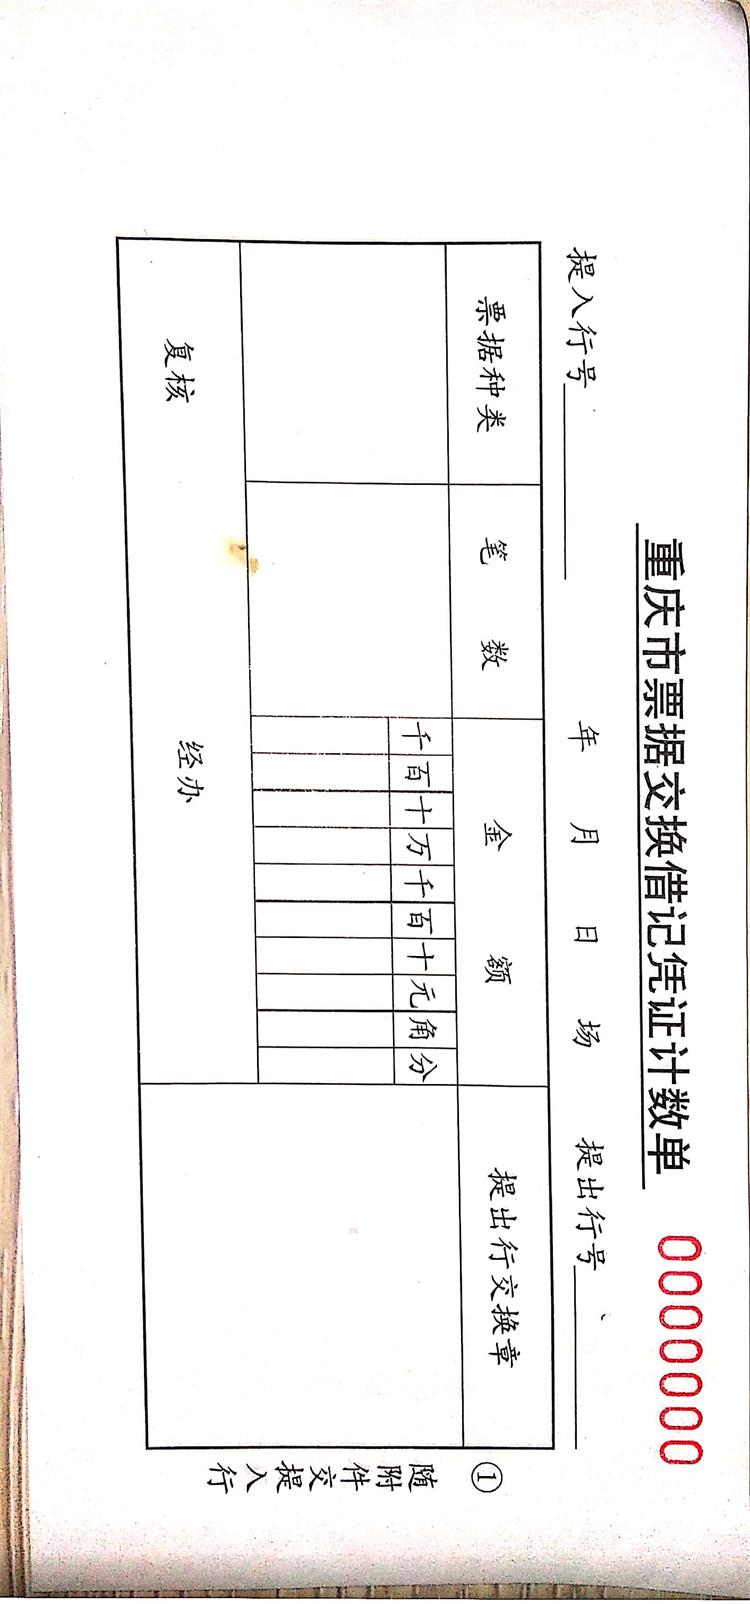 重庆市票据交换借记凭证计数单 00000000
提入行号 年 月 日 场 提出行号
票据种类 笔 数 金 额 提出行交换章
千 百 十 万 千 百 十 元 角 分
复核 经办
① 随附件交提入行